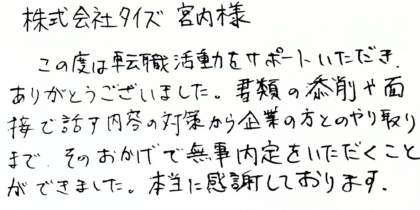 株式会社タイズ 宮内様
この度は転職活動をサポートいただき、
ありがとうございました。書類の添削や面
接で話す内容の対策から企業の方とのやり取り
まで、そのおかげで無事内定をいただくこと
ができました。本当に感謝しております。